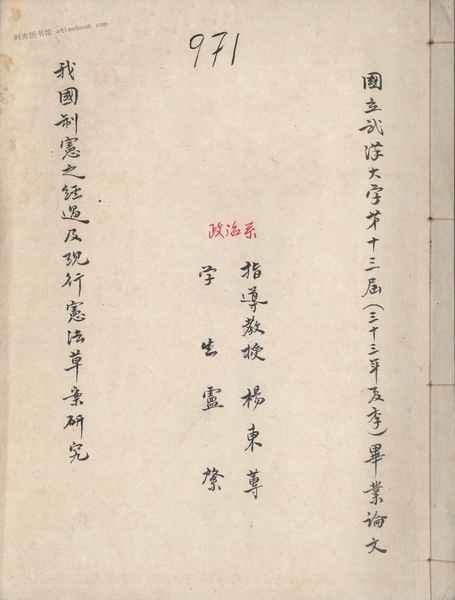 时光图书馆 atimebook.com
971
國立武漢大学第十三屆（三十三年夏季）畢業論文
政治系
指導教授 楊東蓴
学生
我國制憲之經過及現行憲法草案研究